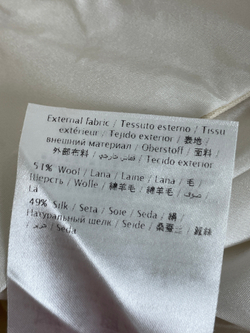 External fabric / Tessuto esterno / Tissu
extérieur / Tejido exterior / 表地 /
внешний материал / Oberstoff / 面料 /
外部布料 / قماش خارجي / Tecido exterior
51% Wool / Lana / Laine / Lana / 毛 /
Шерсть / Wolle / 綿羊毛 / 綿羊毛 / صوف /
Lã
49% Silk / Seta / Soie / Seda / 絹 /
Натуральный шелк / Seide / 桑蠶絲 /
حرير / Seda